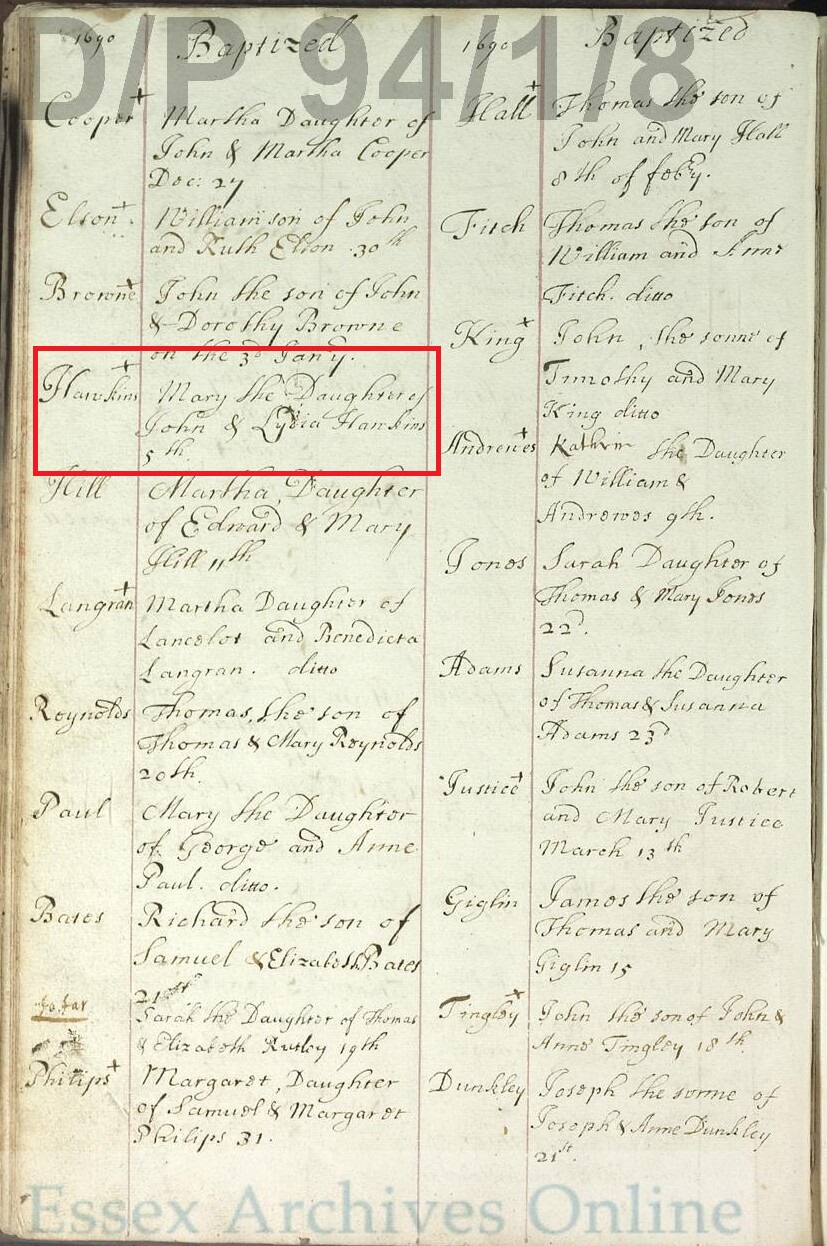 D/P 94/1/8
1690 Baptized
Cooper + Martha Daughter of
John & Martha Cooper
Dec: 27
Elson + William son of John
and Ruth Elson 30th
Browne + John the son of John
& Dorothy Browne
on the 3d Jany.
Hawkins + Mary the Daughter of
John & Lydia Hawkins
5th.
Hill Martha Daughter
of Edward & Mary
Hill 11th
Langran + Martha Daughter of
Lancelot and Benedicta
Langran. ditto
Reynolds Thomas the son of
Thomas & Mary Reynolds
20th.
Paul Mary the Daughter
of George and Anne
Paul. ditto.
Bates Richard the son of
Samuel & Elizabeth Bates
21st
Sarah the Daughter of Thomas
& Elizabeth Rutley 19th
Philips + Margaret Daughter
of Samuel & Margaret
Philips 31.
1690 Baptized
Hall + Thomas the son of
John and Mary Hall
8th of feby.
Fitch Thomas the son of
William and Anne
Fitch. ditto
King + John the sonne of
Timothy and Mary
King ditto
Andrewes + the Daughter
of William &
Andrewes 9th.
Jones Sarah Daughter of
Thomas & Mary Jones
22d.
Adams Susanna the Daughter
of Thomas & Susanna
Adams 23d
Justice + John the son of Robert
and Mary Justice
March 13th
Giglin James the son of
Thomas and Mary
Giglin 15
Tingley + John the son of John &
Anne Tingley 18th.
Dunkley Joseph the sonne of
Joseph & Anne Dunkley
21st.
Essex Archives Online